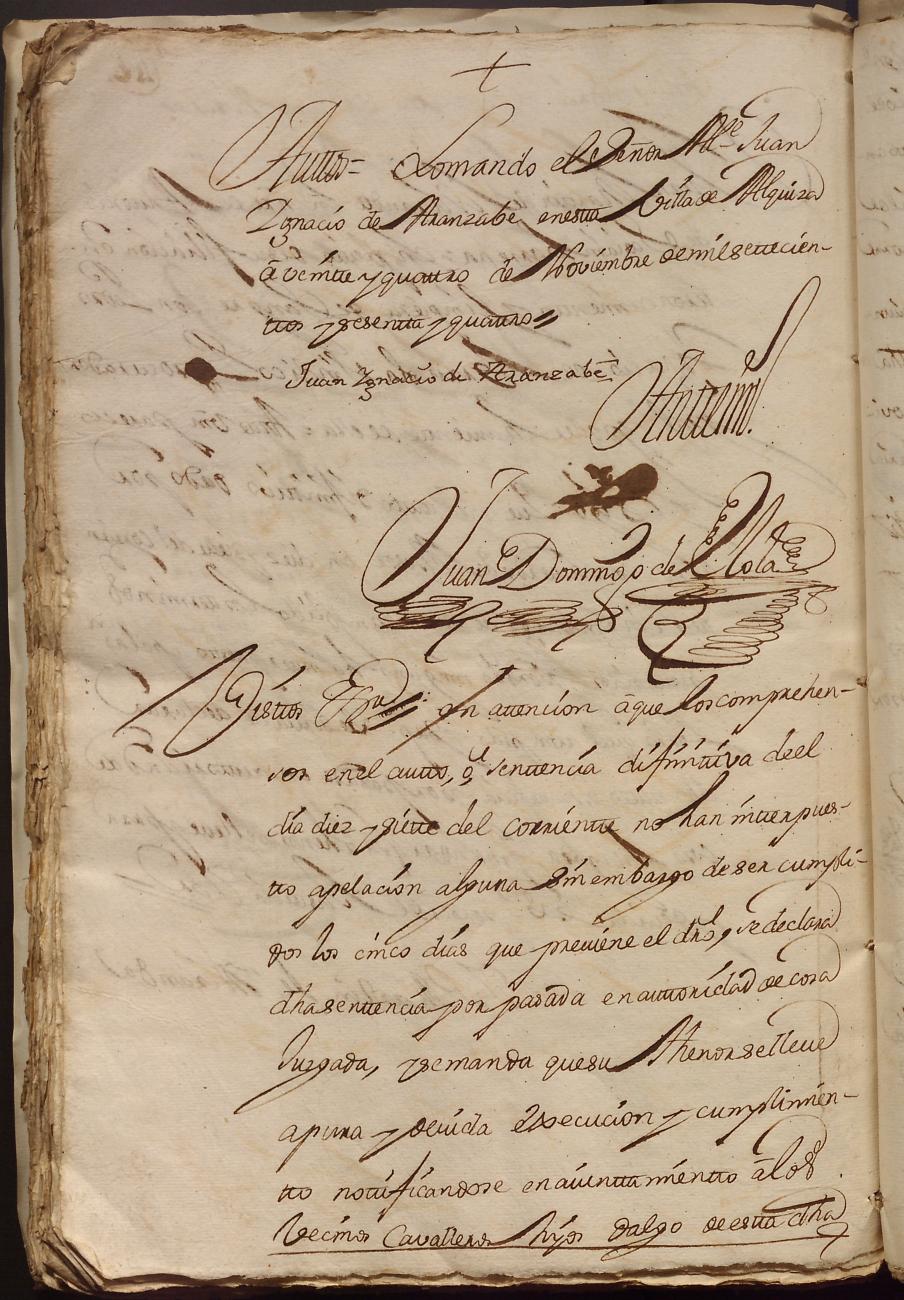 +
Auttos= Lo mando el Señor Alle Juan
Ignacio de Aranzabe en esta Villa de Alquiza
â veintte y quattro de Noviembre de mil settecien-
ttos y sesentta y quattro =
Juan Ignacio de Aranzabe
Anttemi
Juan Domingo de Olola
Visttos &ra = En attencion âque los comprehen-
sos en el autto, ô sentencia difinitiva deel
dia diez y siette del corriente no han interpues-
tto apelacion alguna sin embargo de ser cumpli-
dos los cinco dias que previene el drô, se declara
dha sentencia por pasada en auttoridad de cosa
Juzgada, y se manda que su thenor se lleve
a pura y devida execucion y cumplimien-
tto notificandose en aiunttamientto â los
Vecinos Cavalleros hijos dalgo de esta dha